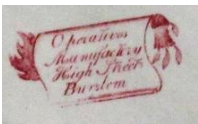 Operatives
Manufactory
High Street
Burslem